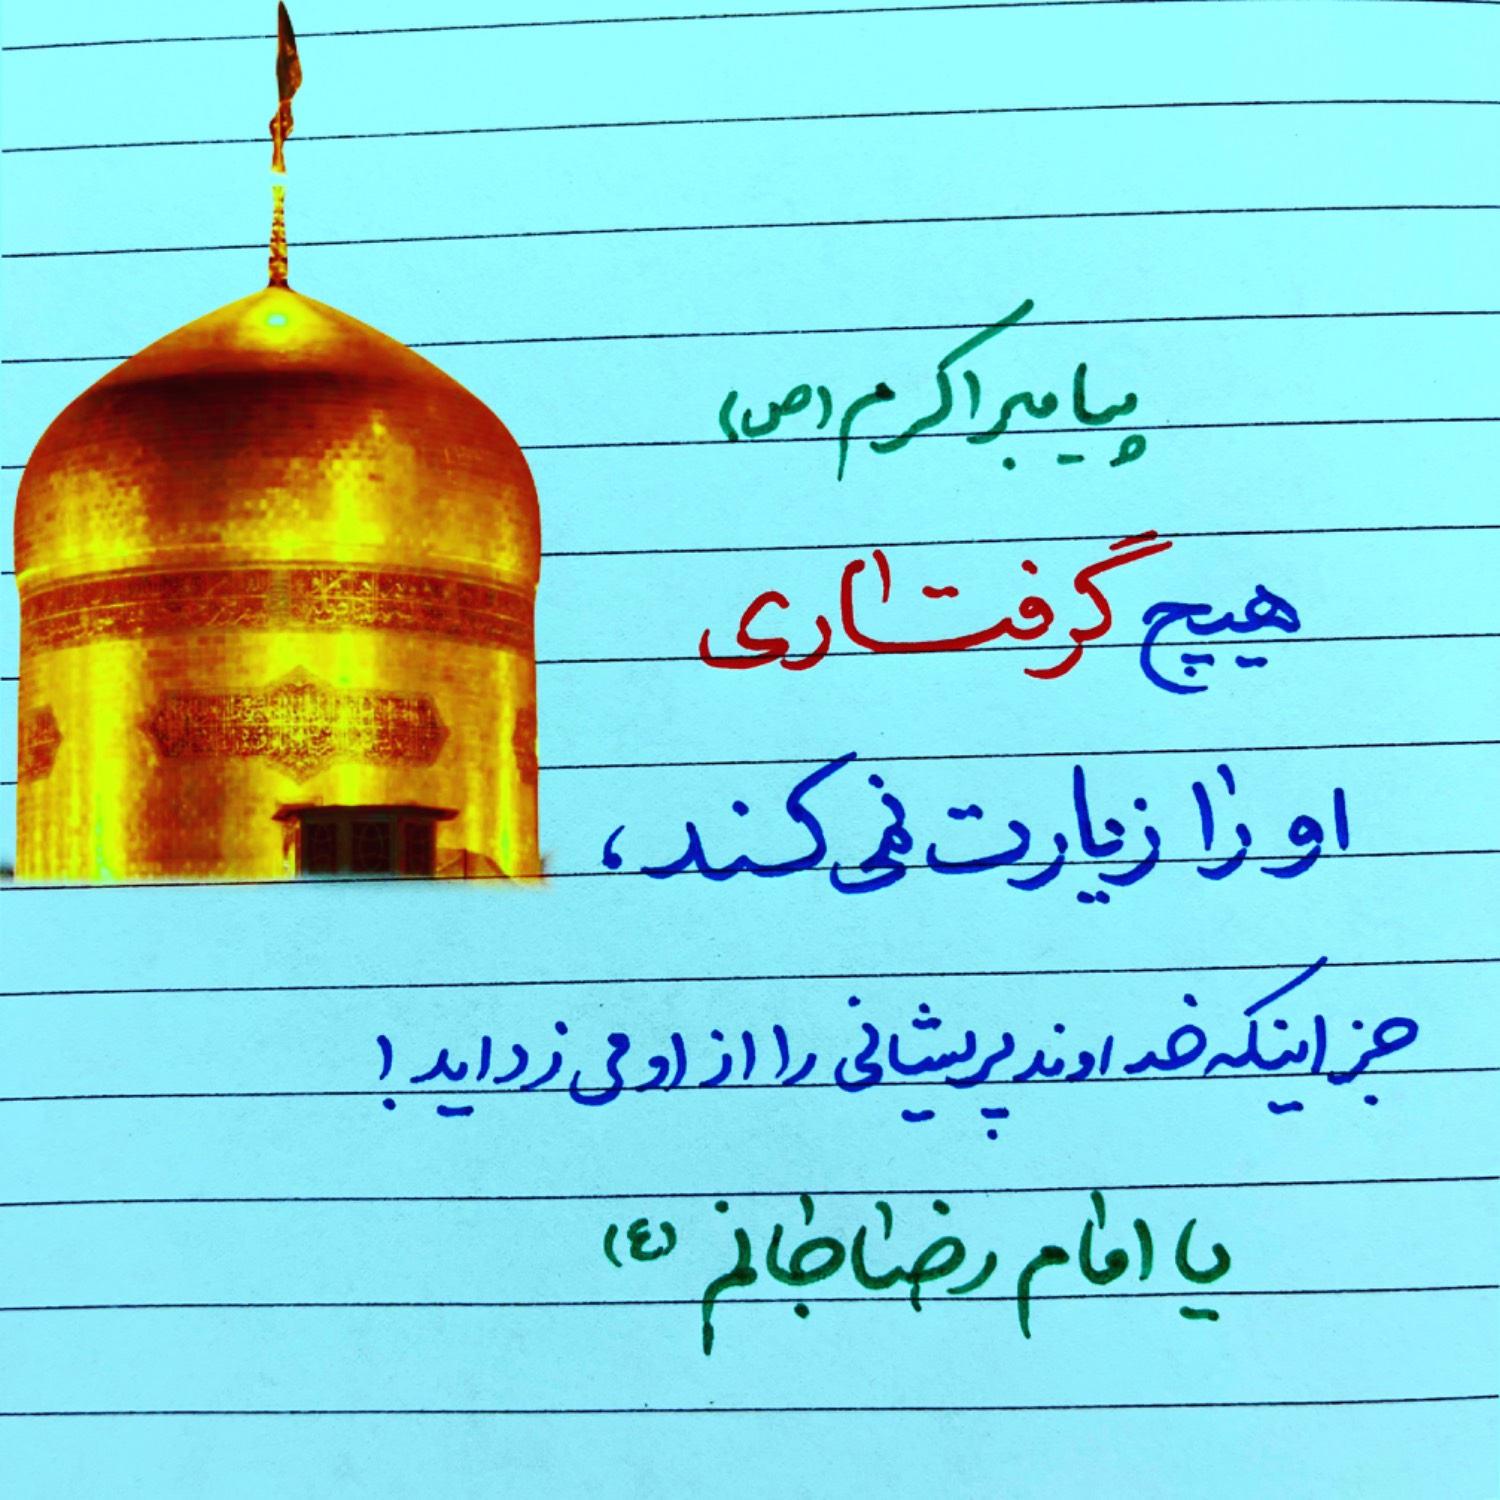 پیامبر اکرم (ص)
هیچ گرفتاری
او را زیارت نمی کند،
جز اینکه خداوند پریشانی را از او می زداید!
یا امام رضا جانم (ع)